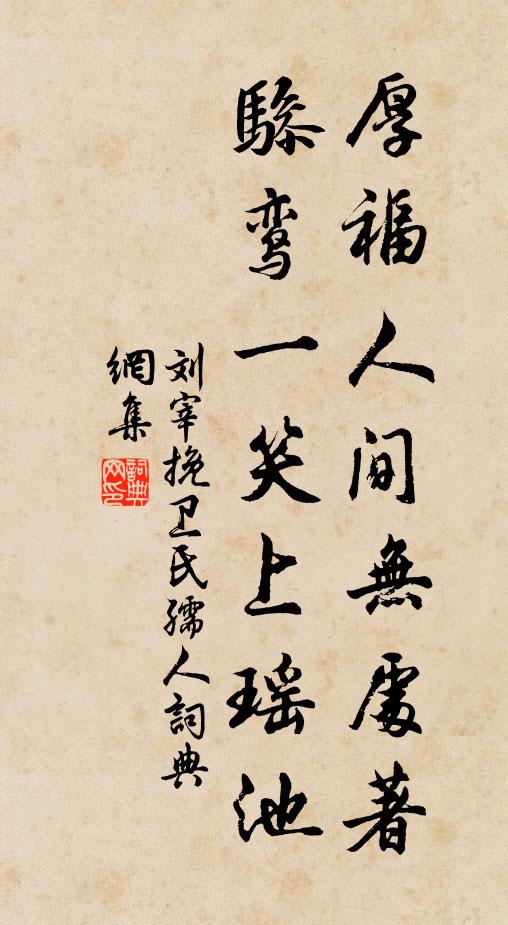 厚福人间無處著
骖鸾一笑上瑶池
刘宰挽卫氏孺人詞典
網集
詞典網印